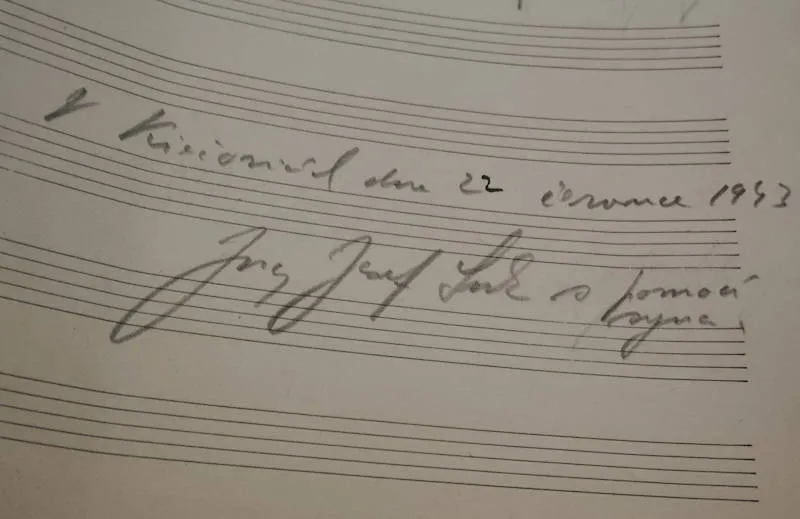 V Křečovicích dne 22 července 1943
Ing Josef Suk s pomocí
syna.